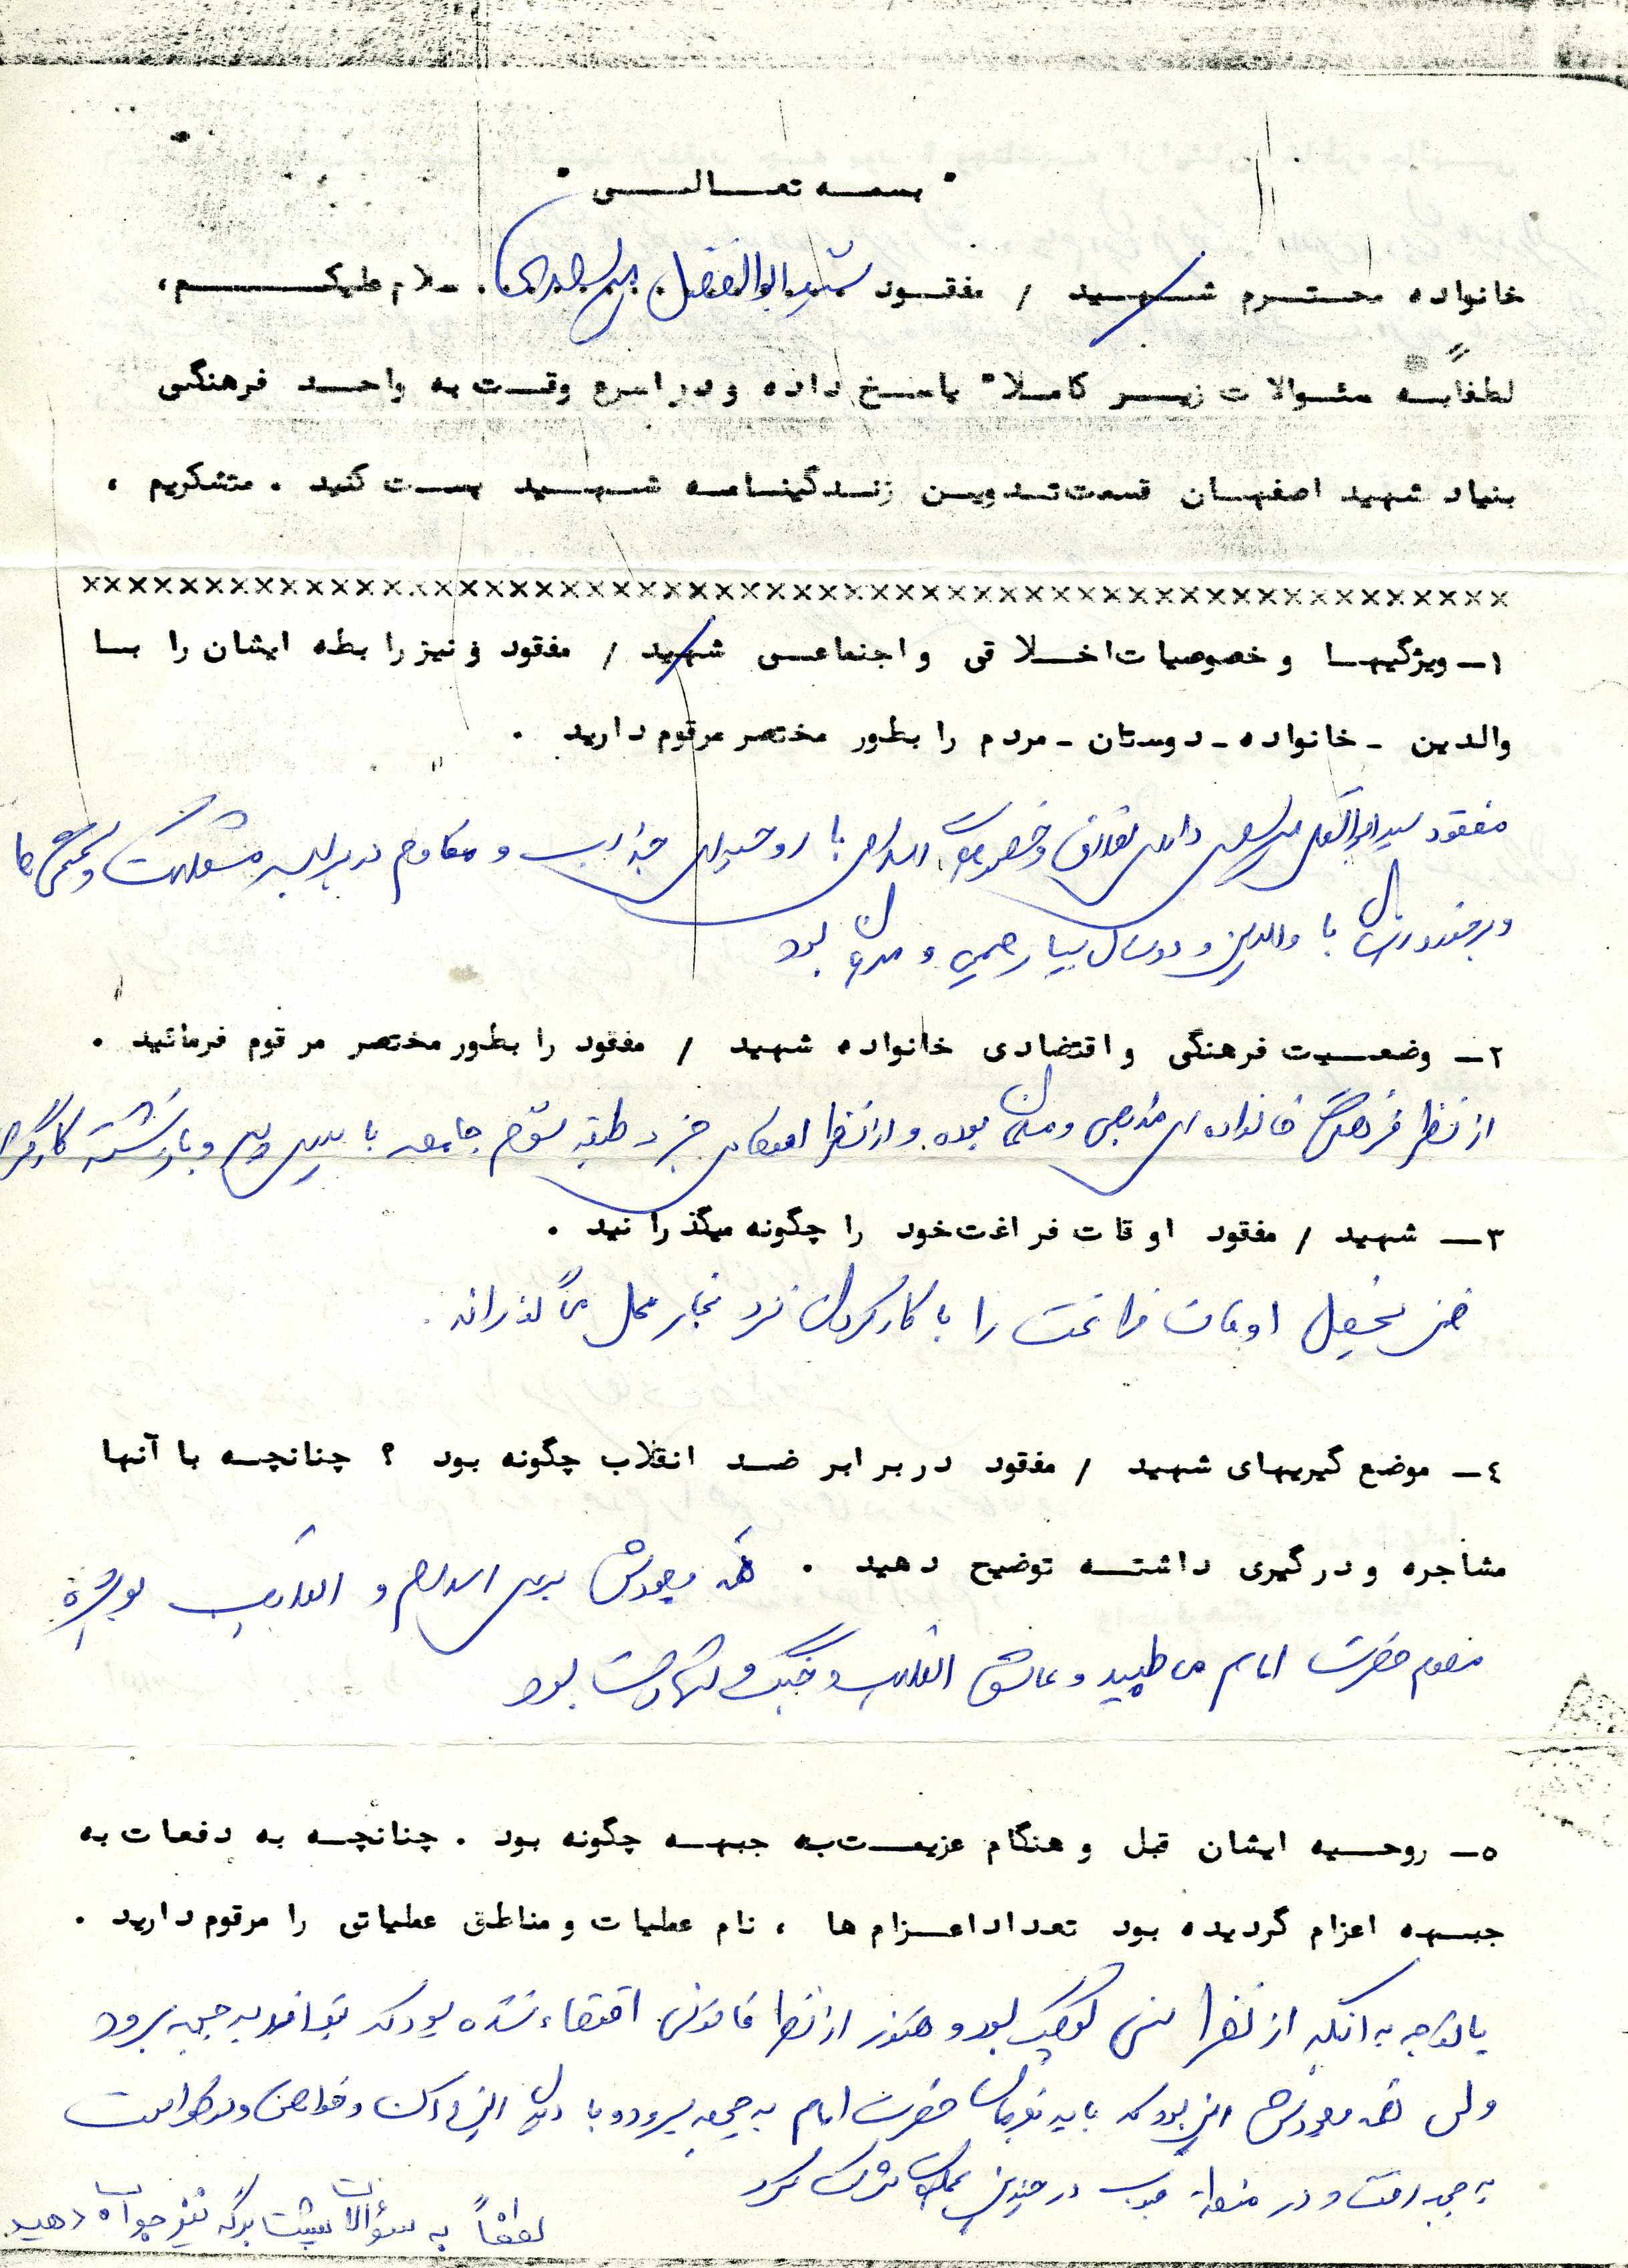 بسمه تعالی
خانواده محترم شهید / مفقود سید ابوالفضل . سلام علیکم،
لطفاً به سئوالات زیر کاملا" پاسخ داده و در اسرع وقت به واحد فرهنگی
بنیاد شهید اصفهان قسمت تدوین زندگینامه شهید پست کنید . متشکریم .
××××××××××××××××××××××××××××××××××××××××××××××××××××××××
۱- ویژگیها و خصوصیات اخلاقی و اجتماعی شهید / مفقود و نیز رابطه ایشان را با
والدین - خانواده - دوستان - مردم را بطور مختصر مرقوم دارید .
مفقود سید ابوالفضل دارای اخلاق و خصوصیات اسلامی با روحیه‌ای جذاب و مقاوم در برابر مشکلات و سختی‌ها
و برخوردش با والدین و دوستان بسیار صمیمی و مهربان بود
۲- وضعیت فرهنگی و اقتضادی خانواده شهید / مفقود را بطور مختصر مرقوم فرمائید .
از نظر فرهنگی خانواده‌ای مذهبی و مسلمان بوده و از نظر اقتصادی جزء طبقه سوم جامعه با و با کارگری
۳- شهید / مفقود اوقات فراغت خود را چگونه میگذرانید .
ضمن تحصیل اوقات فراغت را با کار کردن نزد نجار محل می‌گذراند.
٤- موضع گیریهای شهید / مفقود در برابر ضد انقلاب چگونه بود ؟ چنانچه با آنها
مشاجره و درگیری داشته توضیح دهید . همه وجودش برای اسلام و انقلاب بویژه
حضرت امام می‌طپید و عاشق انقلاب و جنگ و شهادت بود
۵- روحیه ایشان قبل و هنگام عزیمت به جبهه چگونه بود . چنانچه به دفعات به
جبهه اعزام گردیده بود تعداد اعزام ها ، نام عملیات و مناطق عملیاتی را مرقوم دارید .
با توجه به آنکه از نظر سنی کوچک بود و هنوز از نظر قانونی اقتضاء نشده بود که بتواند به جبهه برود
ولی همه وجودش این بود که باید بفرمان حضرت امام به جبهه برود و با
به جبهه رفت و در منطقه جنوب در چندین عملیات شرکت کرد
لطفاً به سؤالات پشت برگه نیز جواب دهید